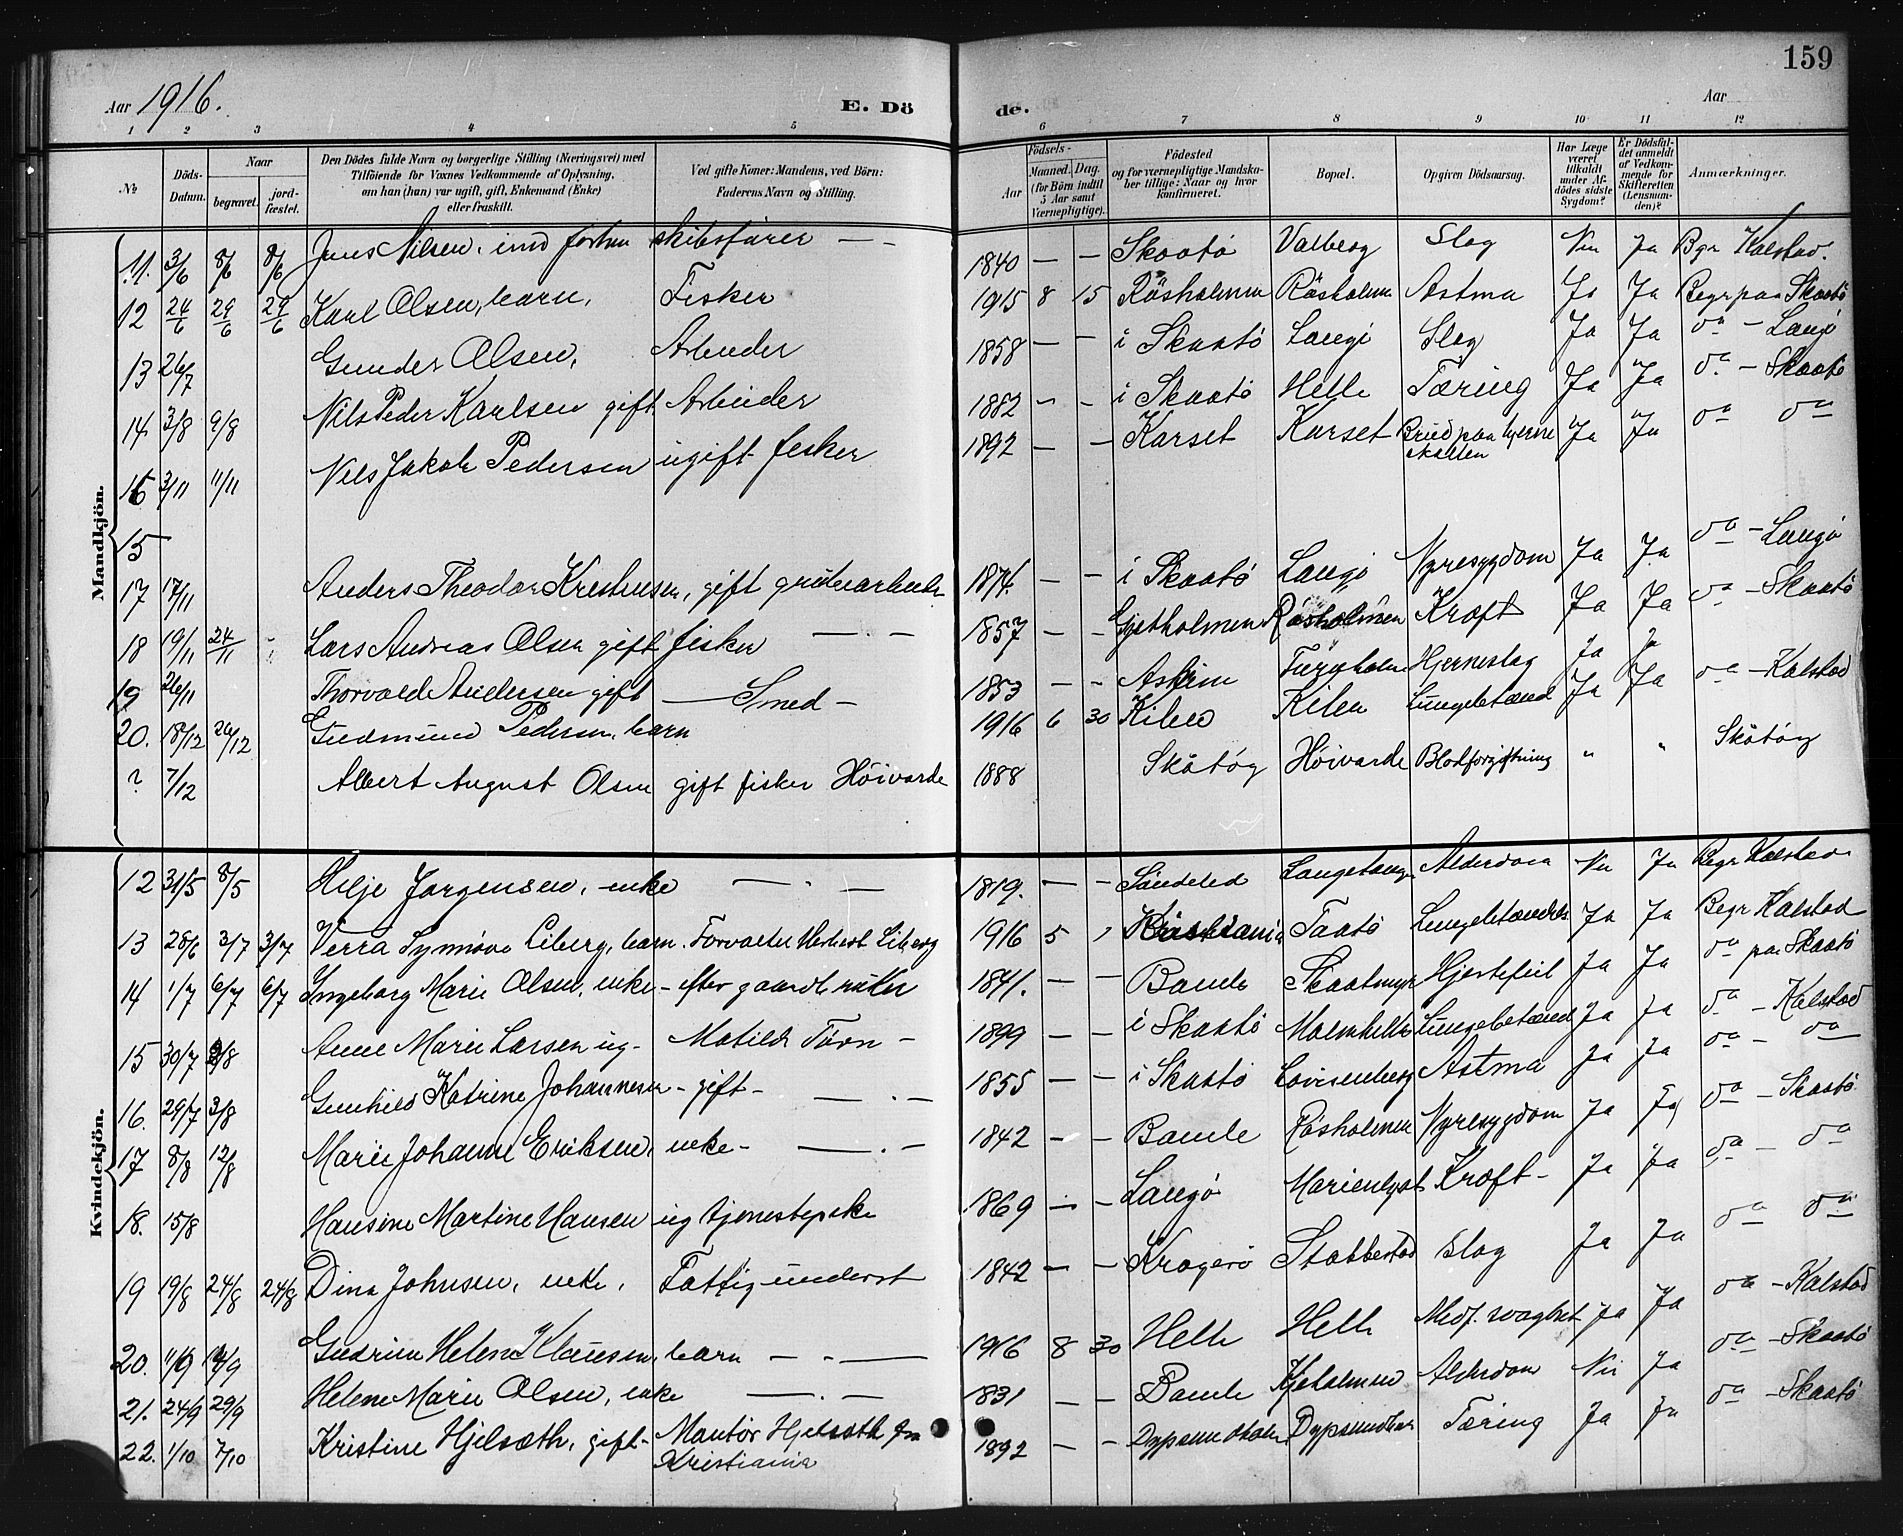 159
Aar 1916. E. Dö de. Aar
1 2 3 4 5 6 7 8 9 10 11 12
No Döds-Datum. Naar begravet. jord-fæstet. Den Dödes fulde Navn og borgerlige Stilling (Næringsvei) med Tilföiende for Voxnes Vedkommende af Oplysning, om han (hun) var ugift, gift, Enkemand (Enke) eller fraskilt. Ved gifte Koner: Mandens, ved Börn: Faderens Navn og Stilling. Födsels- Aar Maaned. Dag. (for Börn indtil 5 Aar samt Værnepligtige). Födested og for værnepligtige Mandska-ber tillige: Naar og hvor konfirmeret. Bopæl. Opgiven Dödsaarsag. Har Læge været tilkaldt under Af-dödes sidste Sygdom? Er Dödsfal-det anmeldt af Vedkom-mende for Skifteretten (Lensman-den)? Anmærkninger.
Mandkjön.
11. 3/6 8/6 8/6 Jens Nilsen, skibsfører — - 1840 — — Skaatö Valberg Slag Nei Ja Begr Kalstad.
12 24/6 29/6 29/6 Karl Olsen, barn, Fisker 1915 8 15 Röshölmen Rösholmen Astma Ja Ja Begr paa Skaatö
13 26/7 Gunder Olsen, Arbeider 1858 - - i Skaatö Langö Slag Ja Ja do - Langö
14 3/8 9/8 Nils Peder Karlsen gift Arbeider 1882 - - i Skaatö Helle Tæring Ja Ja do - Skaatö
16 3/11 11/11 Nils Jakob Pedersen ugift fisker 1892 — — Karset Karset Brud paa hjerneskallen Ja Ja do do
15 —
17 17/11 Anders Theodor Kristensen, gift grubearbeider 1874. — - i Skaatö Langö Nyresygdom Ja Ja do - Langö
18 19/11 24/11 Lars Andreas Olsen gift fisker — . — 1857 — - Gjetholmen Rösholmen Kræft Ja Ja do - Skaatö
19 26/11 Thorvald Andersen gift — Smed - 1853 - - Askim Furuholmen Hjerneslag Ja Ja
20. 18/12 26/12 Gudmund Pedersen, barn 1916 6 30 Kilen Kilen Lungebetænd Ja Ja do - Kalstad
? 7/12 Albert August Olsen gift fisker Höivarde 1888 Skåtöy Höivarde Blodforgiftning " " Skåtöy
Kvindekjön.
12 31/5 8/5 Helje Jørgensen, enke — . — 1819. — - Söndeled Langetangen Alderdom Nei Ja Begr Kalstad
13 28/6 3/7 3/7 Verra Synnöve Liberg, barn. Forvalter Herbert Liberg 1916 5 1 Kristiania Taatö Lungebetændelse Ja Ja Begr Kalstad
14 1/7 6/7 6/7 Ingeborg Marie Olsen, enke - efter gaardbruker 1841. — — Bamle Skaatmyr Hjertefeil Ja Ja do paa Skaatö
15 30/7 2/8 Anne Marie Larsen ug- Matilde Törn - 1899 — — i Skaatö Malmhella Lungebetænd Ja Ja do - Kalstad
16. 29/7 3/8 Gunhild Katrine Johannesen - gift - — . — 1855 — — i Skaatö Lovisenberg Astma Ja Ja do - do
17 8/8 12/8 Marie Johanne Eriksen, enke - — . — 1842 - - Bamle Rösholmen Nyresygdom Ja Ja do - Skaatö.
18. 15/8 Hansine Martine Hansen ug tjenestepike 1869 — - Langö Marienlyst Kræft - Ja Ja do - do
19 19/8 24/8 24/8 Dina Johnsen, enke, Fattigunderst 1842 — — Kragerö Stabbestad Slag Ja Ja do do
20. 11/9 14/9 Gudrun Helene Klausen, barn — - — 1916 8 30 Helle Helle Medf. svaghet Ja Ja do - Kalstad
21. 24/9 29/9 Helene Marie Olsen, enke — . — 1831 — — Bamle Kjeholmen Alderdom Nei Ja do - Skaatö
22. 1/10 7/10 Kristine Hjelsæth, gift - Montör Hjelsæth fra Kristiania 1892 — - Dypsundholmen Dypsundholmen Tæring Ja Ja do - Skaatö